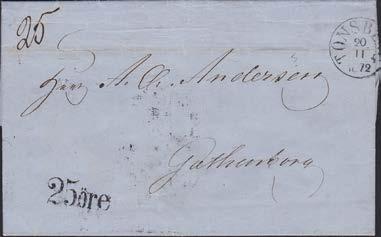 25
TØNSBE
20
11
1872
Herr A. A. Andersen
Gothenborg
25 öre